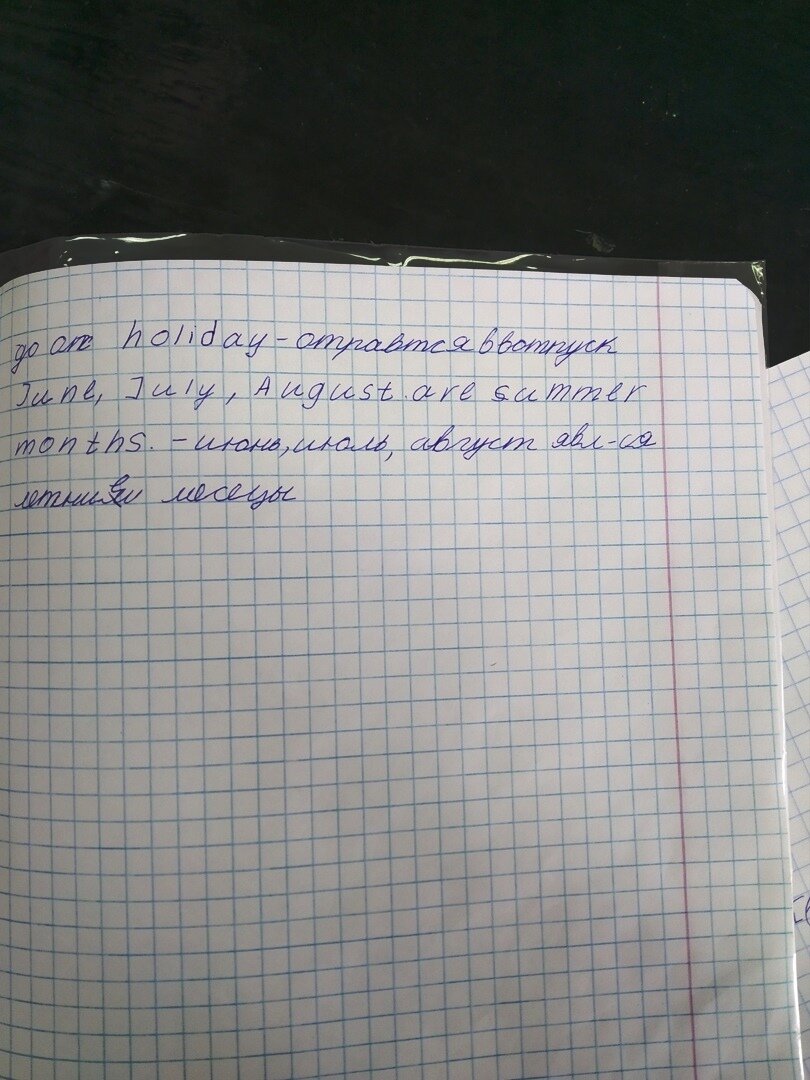 go on holiday - отравтся ввотпуск
June, July, August are summer
months. - июнь, июль, август явл-ся
месецы